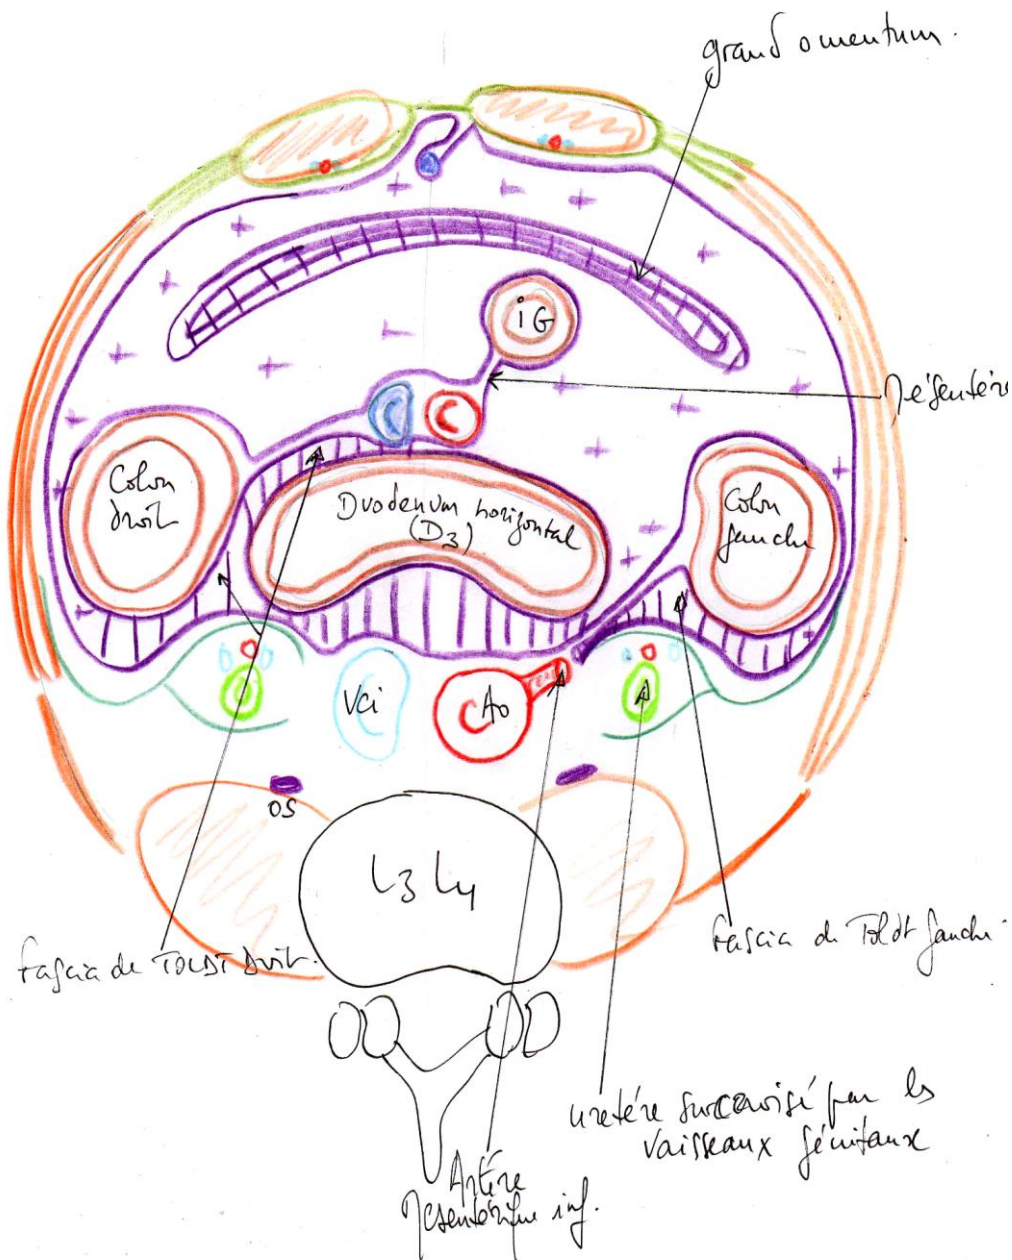 grand omentum.
iG
Mésentère
Colon
droit
Duodenum horizontal
(D3)
Colon
gauche
Vci
Ao
OS
L3 L4
Fascia de TOLDT Droit.
Fascia de Toldt gauche.
uretère surcroisé par les
vaisseaux génitaux
Artère
Mesentérique inf.